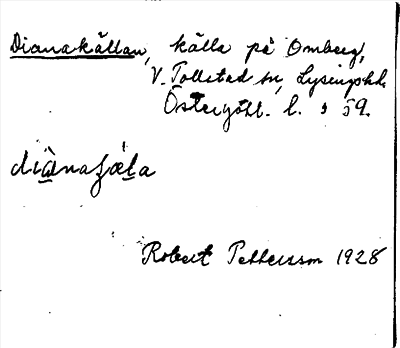 Dianakällan, källa på Omberg,
V. Tollstad sn, Lysings hd.
Östergötl. l.
diànaʃæ̀la
Robert Pettersson 1928